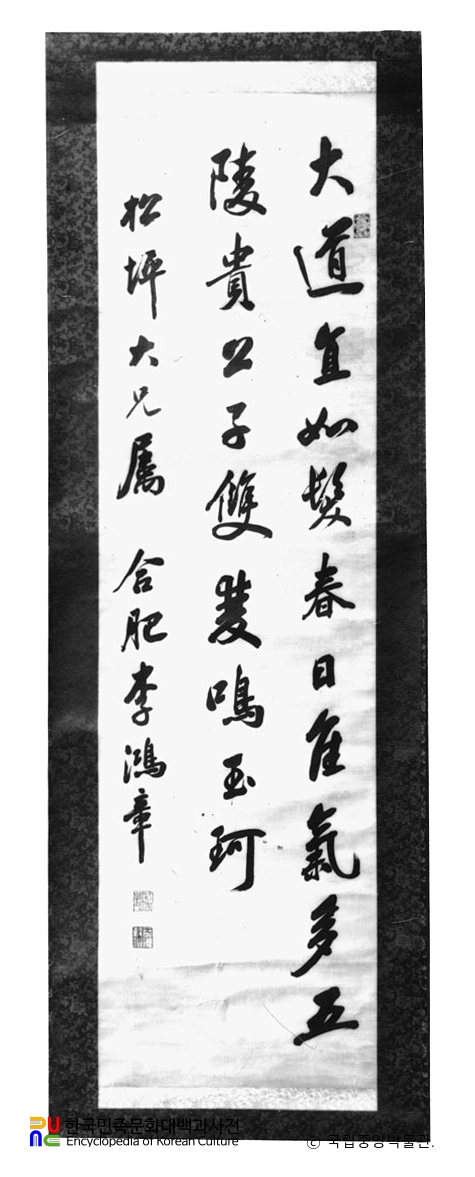 大道直如髮春日隹氣多五
陵貴公子雙雙鳴玉珂
松坪大兄屬 合肥李鴻章
한국민족문화대백과사전
Encyclopedia of Korean Culture
© 국립중앙박물관.